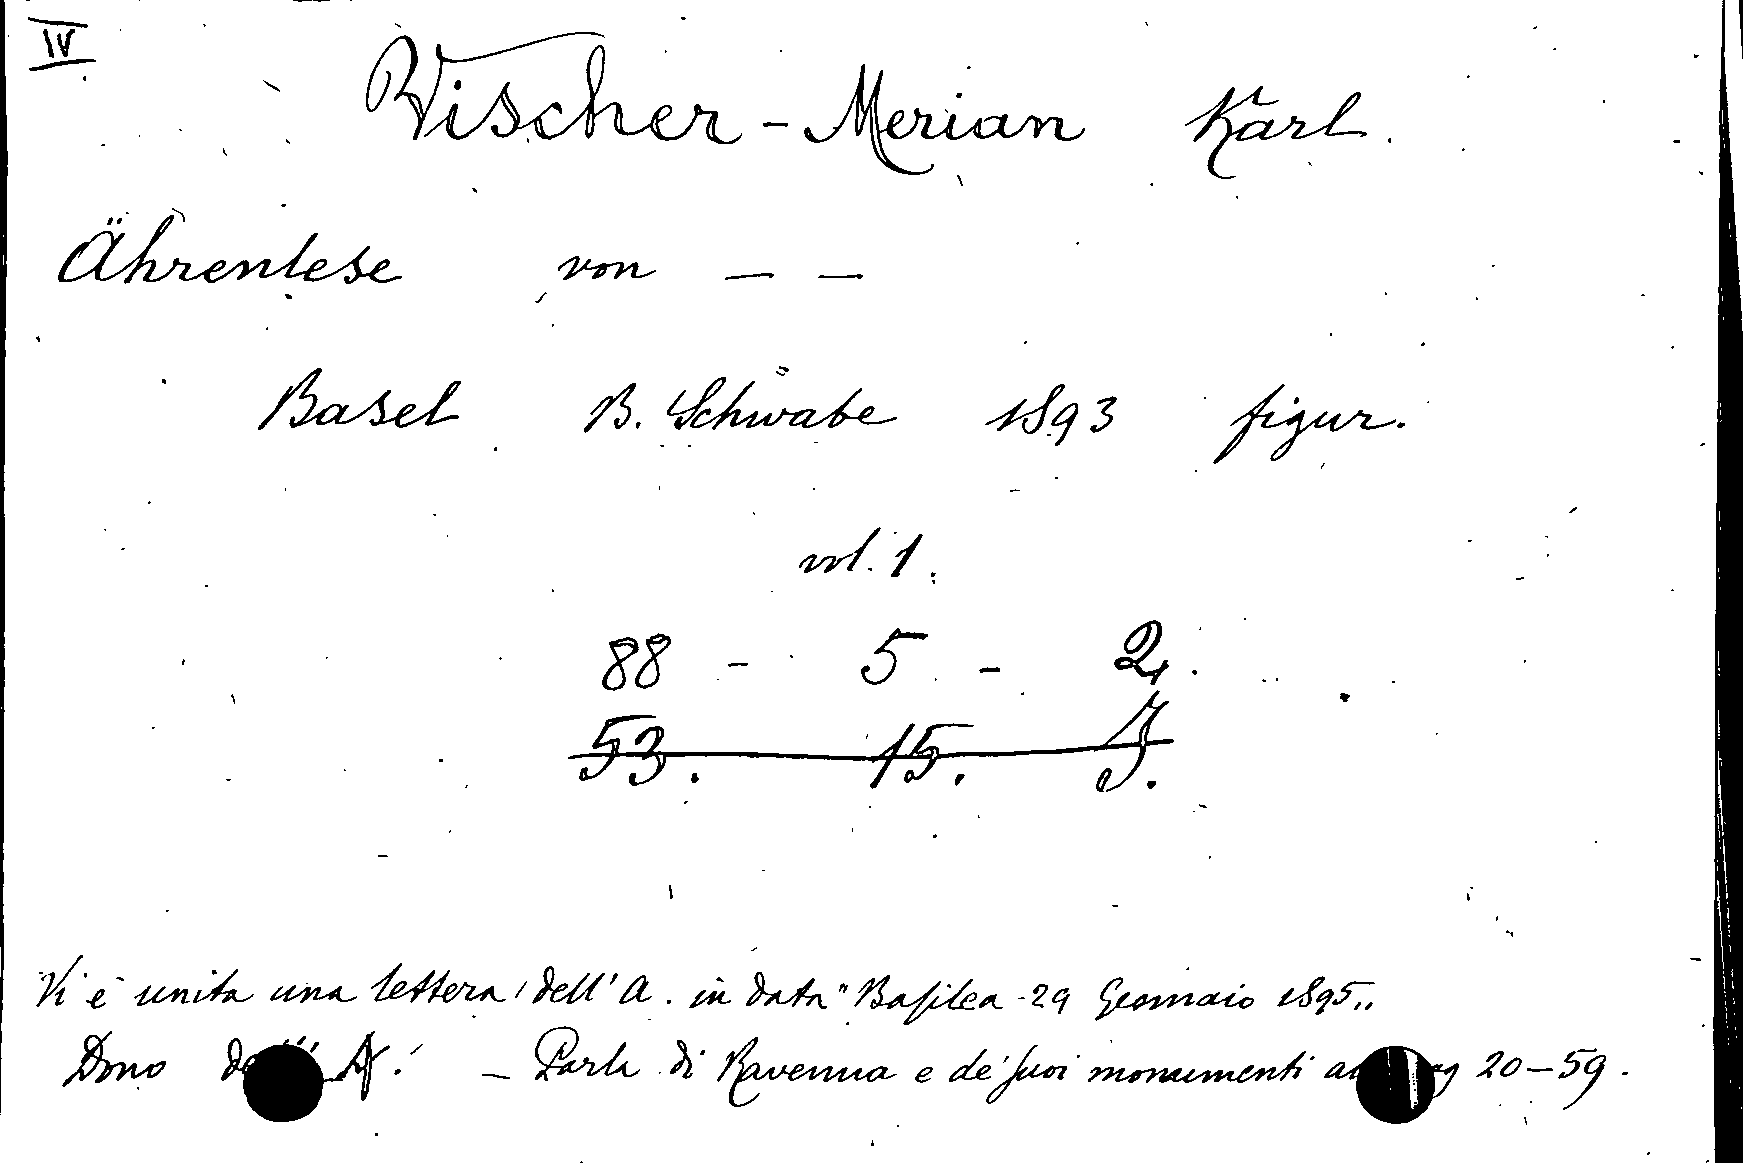 IV
Vischer - Merian Karl.
Ährenlese von — —
Basel B. Schwabe 1893 figur.
vol. 1.
88 - 5 - 2.
53. 15. J.
Vi è unita una lettera dell' A. in data "Basilea 29 Gennaio 1895"
Dono A. — Parla di Ravenna e de' suoi monumenti 20-59.